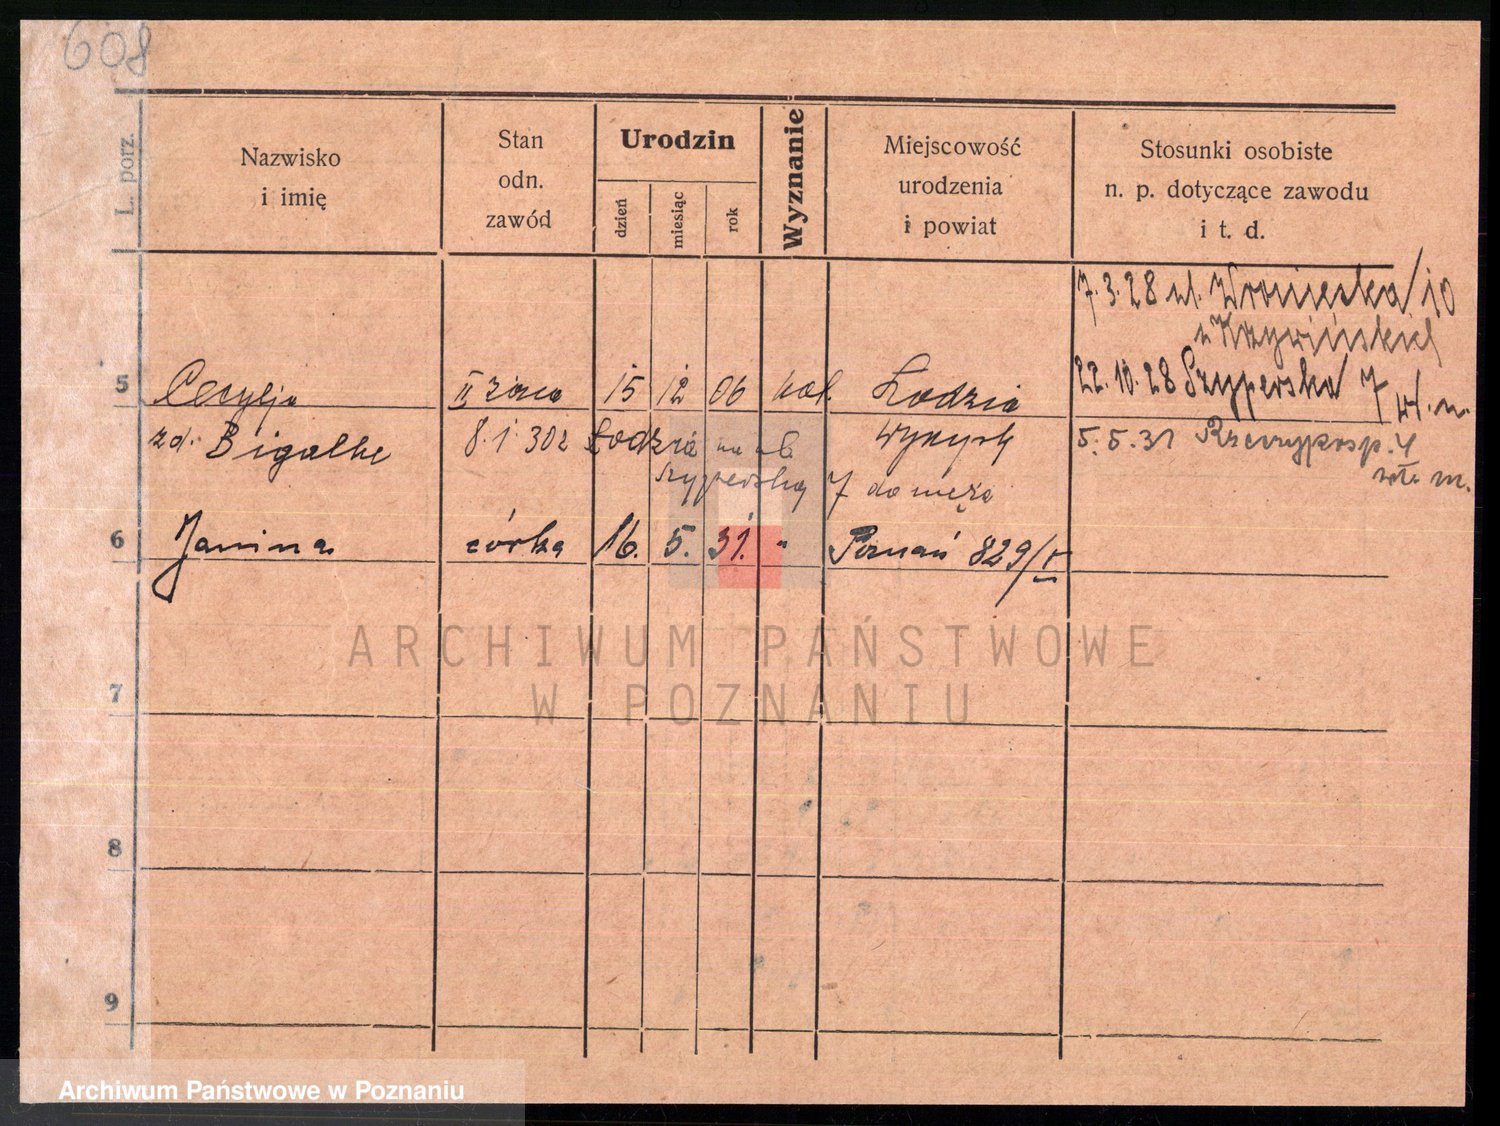 608
L. porz.
Nazwisko
i imię
Stan
odn.
zawód
Urodzin
dzień
miesiąc
rok
Wyznanie
Miejscowość
urodzenia
i powiat
Stosunki osobiste
n. p. dotyczące zawodu
i t. d.
7.3.28 ul. Wroniecka/10
u Krzywińskich
22.10.28 Szyperska 7 wł. m.
5 Cecylja II żona 15 12 06 kat. Łodzia
zd. Bigalke 8.1.30 z Łodzia na ul. Wyrzysk
5.5.31 Rzeczyposp. 4
wł. m.
Szyperską 7 do męża
6 Janina córka 16. 5. 31. " Poznań 829/V
ARCHIWUM PAŃSTWOWE
W POZNANIU
7
8
9
Archiwum Państwowe w Poznaniu